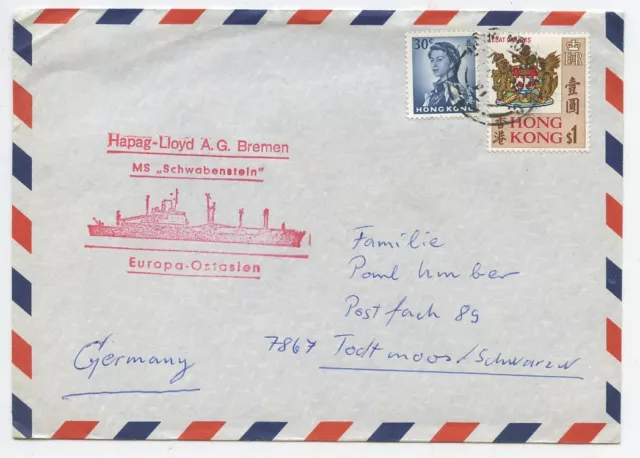 30c
HONG KONG
COAT OF ARMS
EIIR
壹圓
香港
HONG
KONG
$1
Hapag-Lloyd A.G. Bremen
MS „Schwabenstein"
Europa-Ostasien
Familie
Paul Umber
Postfach 89
7867 Todtmoos/Schwarzw
Germany